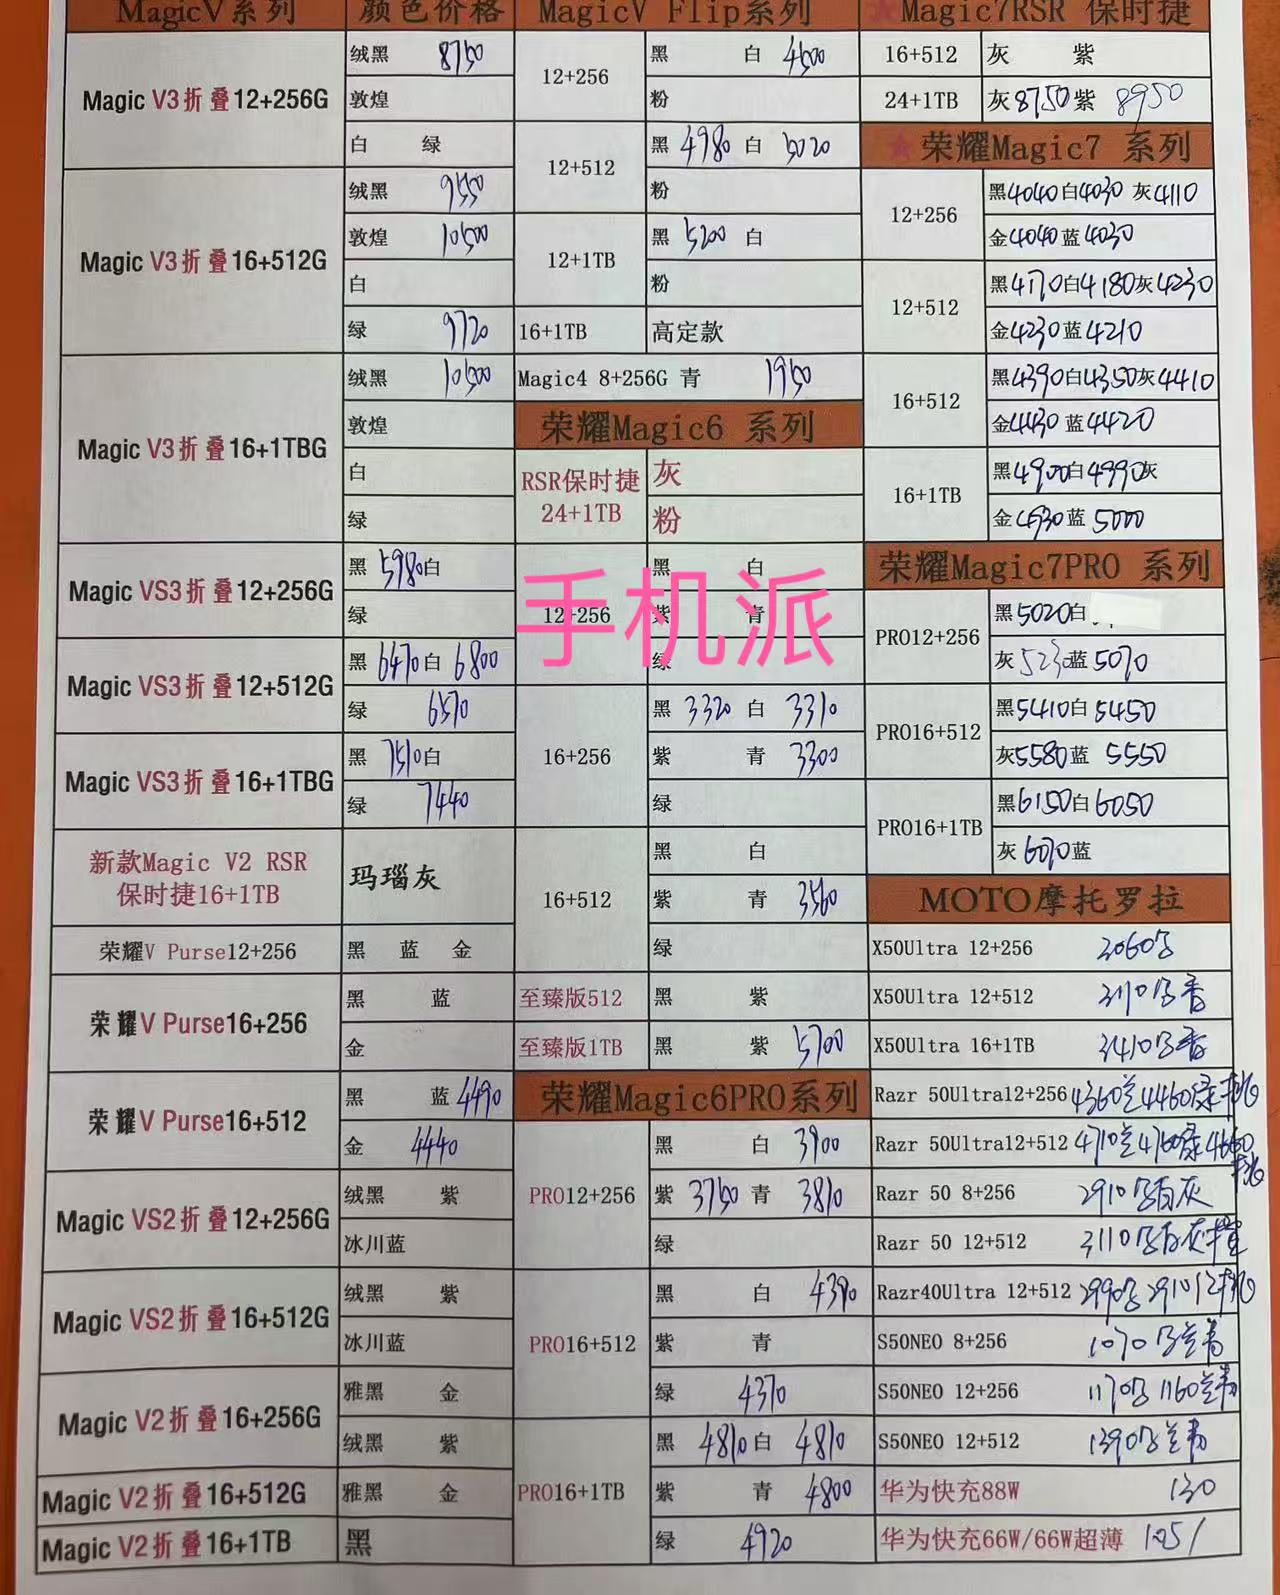 MagicV系列 颜色价格
Magic V3折叠12+256G 绒黑 8750
敦煌
白 绿
Magic V3折叠16+512G 绒黑 9550
敦煌 10500
白
绿 9720
Magic V3折叠16+1TBG 绒黑 10500
敦煌
白
绿
Magic VS3折叠12+256G 黑 5980 白
绿
Magic VS3折叠12+512G 黑 6470 白 6800
绿 6570
Magic VS3折叠16+1TBG 黑 7510 白
绿 7440
新款Magic V2 RSR
保时捷16+1TB
玛瑙灰
荣耀V Purse12+256 黑 蓝 金
荣耀V Purse16+256 黑 蓝
金
荣耀V Purse16+512 黑 蓝 4490
金 4440
Magic VS2折叠12+256G 绒黑 紫
冰川蓝
Magic VS2折叠16+512G 绒黑 紫
冰川蓝
Magic V2折叠16+256G 雅黑 金
绒黑 紫
Magic V2折叠16+512G 雅黑 金
Magic V2折叠16+1TB 黑
MagicV Flip系列
12+256 黑 白 4500
粉
12+512 黑 4980 白 5020
粉
12+1TB 黑 5200 白
粉
16+1TB 高定款
Magic4 8+256G 青 1950
荣耀Magic6 系列
RSR保时捷
24+1TB
灰
粉
12+256 黑 白
紫 青
绿
16+256 黑 3320 白 3310
紫 青 3300
绿
16+512 黑 白
紫 青 3560
绿
至臻版512 黑 紫
至臻版1TB 黑 紫 5700
荣耀Magic6PRO系列
PRO12+256 黑 白 3900
紫 3750 青 3810
绿
PRO16+512 黑 白 4390
紫 青
绿 4370
PRO16+1TB 黑 4810 白 4810
紫 青 4800
绿 4920
Magic7RSR 保时捷
16+512 灰 紫
24+1TB 灰 8750 紫 8950
荣耀Magic7 系列
12+256 黑4040白4030 灰4110
金4040蓝4030
12+512 黑4170白4180灰4230
金4230蓝4210
16+512 黑4390白4350灰4410
金4430蓝4420
16+1TB 黑4900白4990灰
金4930蓝5000
荣耀Magic7PRO 系列
PRO12+256 黑5020白
灰5230蓝5070
PRO16+512 黑5410白5450
灰5580蓝 5550
PRO16+1TB 黑6150白6050
灰6070蓝
MOTO摩托罗拉
X50Ultra 12+256
X50Ultra 12+512
X50Ultra 16+1TB
Razr 50Ultra12+256
Razr 50Ultra12+512
Razr 50 8+256
Razr 50 12+512
Razr40Ultra 12+512
S50NEO 8+256
S50NEO 12+256
S50NEO 12+512
华为快充88W 130
华为快充66W/66W超薄 105
手机派